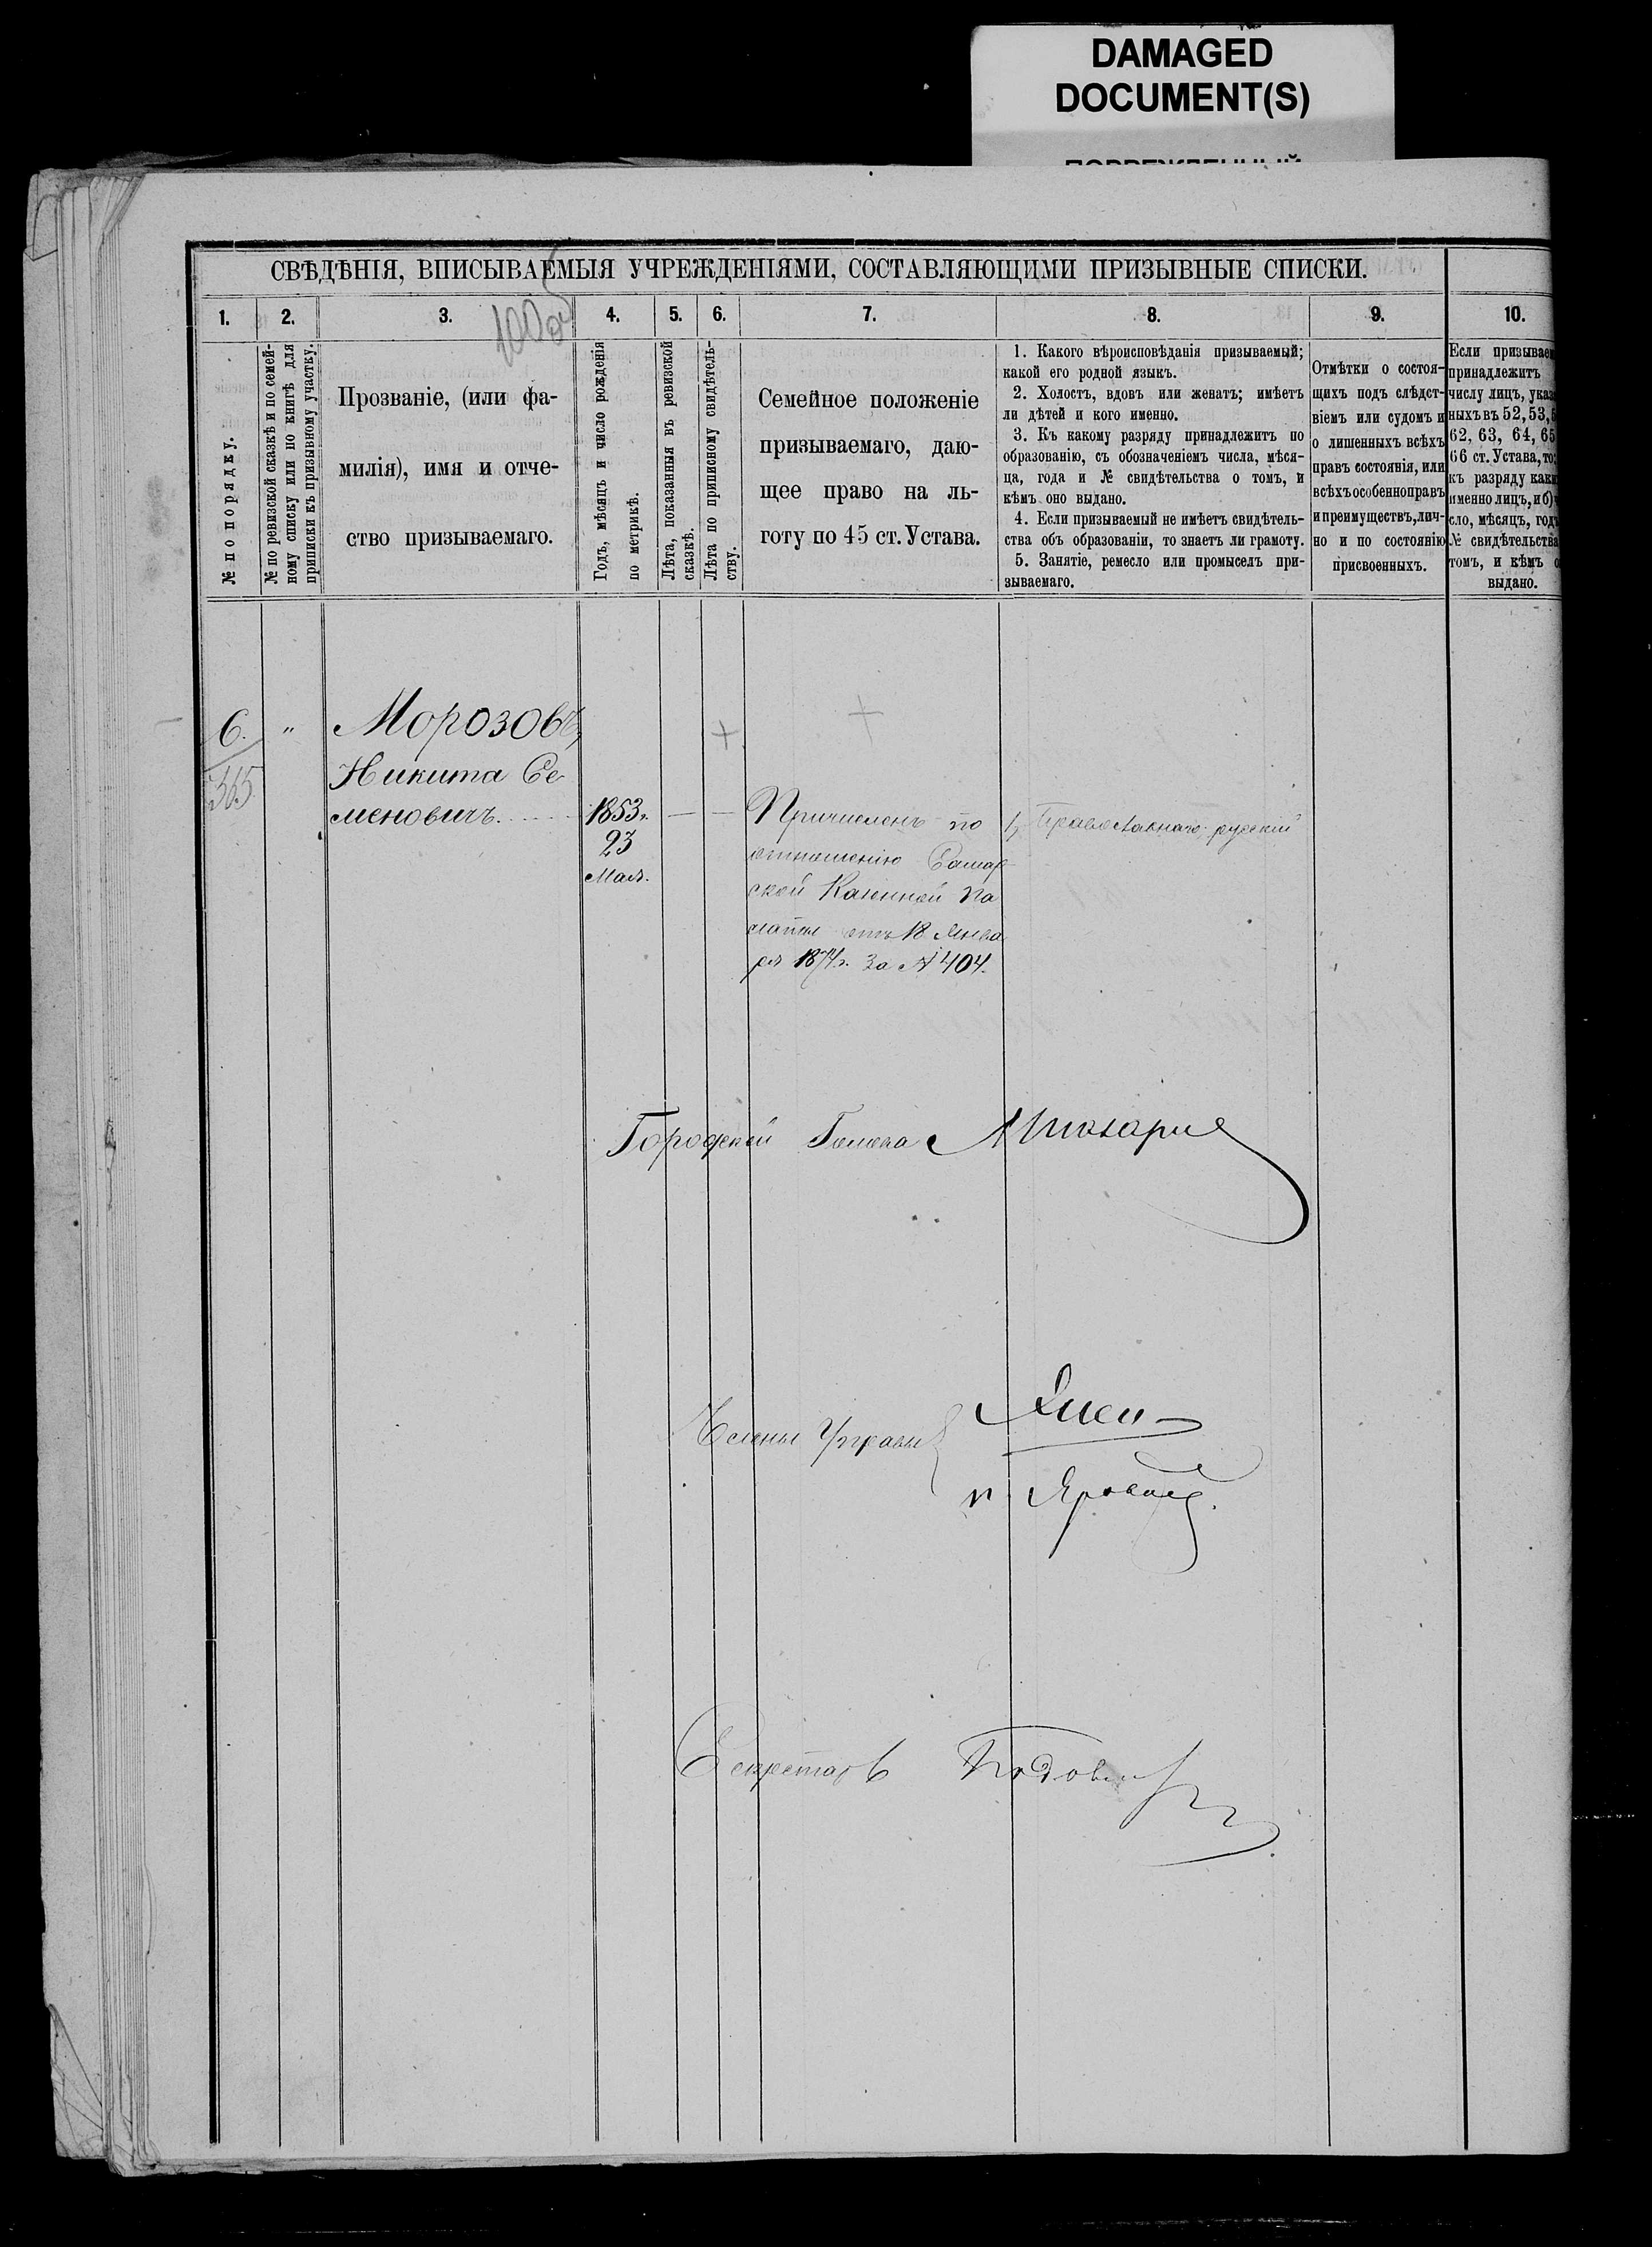 DAMAGED
DOCUMENT(S)
СВѢДѢНІЯ, ВПИСЫВАЕМЫЯ УЧРЕЖДЕНІЯМИ, СОСТАВЛЯЮЩИМИ ПРИЗЫВНЫЕ СПИСКИ.
1.
2.
3.
4.
5.
6.
7.
8.
9.
10.
№ по порядку.
№ по ревизской сказкѣ и по семей-
ному списку или по книгѣ для
приписки къ призывному участку.
Прозваніе, (или фа-
милія), имя и отче-
ство призываемаго.
Годъ, мѣсяцъ и число рожденія
по метрикѣ.
Лѣта, показанныя въ ревизской
сказкѣ.
Лѣта по приписному свидѣтель-
ству.
Семейное положеніе
призываемаго, даю-
щее право на ль-
готу по 45 ст. Устава.
1. Какого вѣроисповѣданія призываемый;
какой его родной языкъ.
2. Холостъ, вдовъ или женатъ; имѣетъ
ли дѣтей и кого именно.
3. Къ какому разряду принадлежитъ по
образованію, съ обозначеніемъ числа, мѣся-
ца, года и № свидѣтельства о томъ, и
кѣмъ оно выдано.
4. Если призываемый не имѣетъ свидѣтель-
ства объ образованіи, то знаетъ ли грамоту.
5. Занятіе, ремесло или промыселъ при-
зываемаго.
Отмѣтки о состоя-
щихъ подъ слѣдст-
віемъ или судомъ и
о лишенныхъ всѣхъ
правъ состоянія, или
всѣхъ особенно правъ
и преимуществъ, лич-
но и по состоянію
присвоенныхъ.
Если призывае
принадлежитъ
числу лицъ, указ
ныхъ въ 52, 53,
62, 63, 64, 65
66 ст. Устава, то
къ разряду каки
именно лицъ, и б)
сло, мѣсяцъ, год
№ свидѣтельства
томъ, и кѣмъ о
выдано.
6. " Морозовъ,
365
Никита Се
меновичъ.
1853г.
23
Мая.
Причисленъ по
отношенію Самар
ской Казенной Па
латы отъ 18 Янва
ря 1874г. за № 404.
1, Православнаго; русскій
Городской Голова
Члены Управы
Секретарь